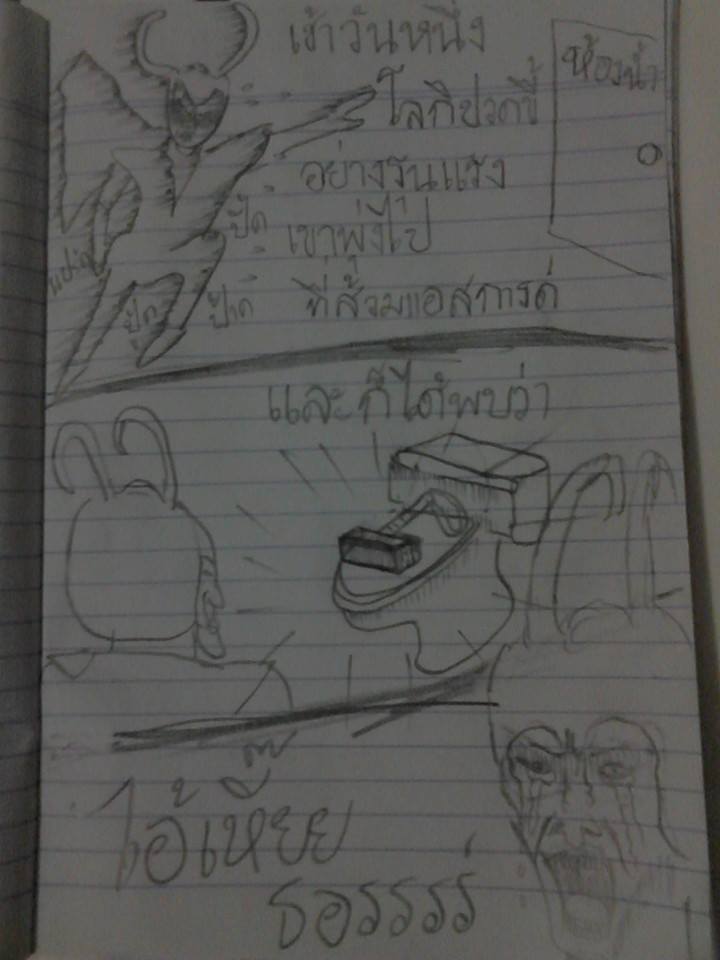 เช้าวันหนึ่ง
ห้องน้ำ
โลกิปวดขี้
อย่างรุนแรง
เขาพุ่งไป
ที่ส้วมแอสการ์ด
ปั๊ด
ปู๊ด
ป๊าด
และก็ได้พบว่า
ไอ้เหี้ยย
ธอรรรร์